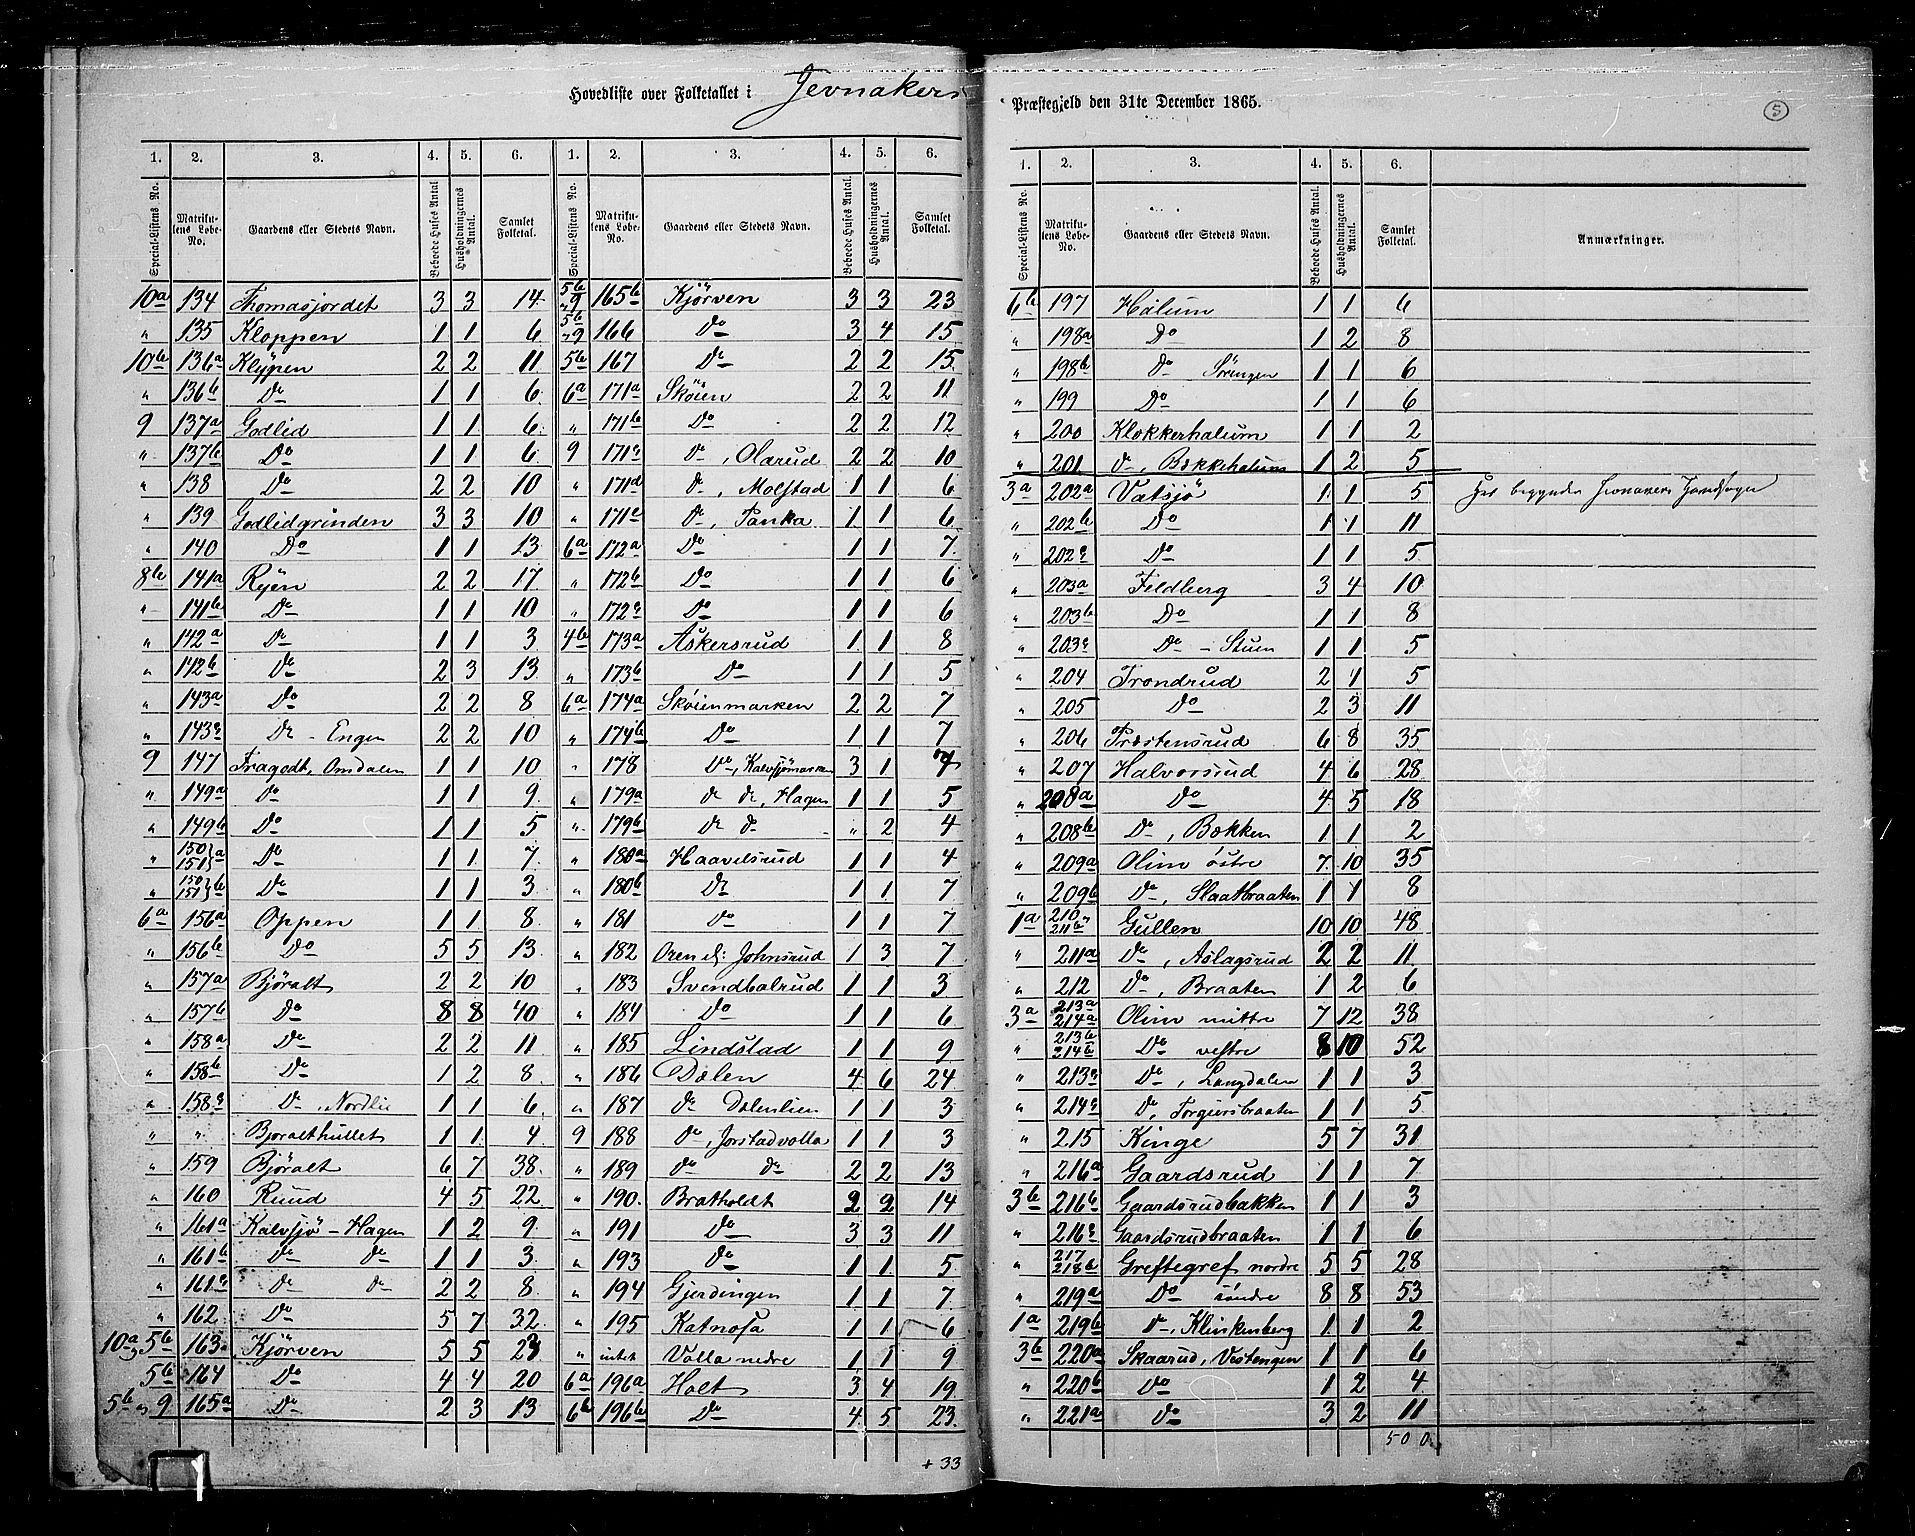 Hovedliste over Folketallet i Jevnakers Præstegjeld den 31te December 1865.
5
1. 2. 3. 4. 5. 6. 1. 2. 3. 4. 5. 6.
Special-Listens No. Matrikulens Løbe-No. Gaardens eller Stedets Navn. Beboede Huses Antal Husholdningernes Antal. Samlet Folketal. Special-Listens No. Matrikulens Løbe-No. Gaardens eller Stedets Navn. Beboede Huses Antal. Husholdningernes Antal. Samlet Folketal.
10a 134 Thomasjordet 3 3 14
" 135 Kloppen 1 1 6
10b 136a Klÿpen 2 2 11
" 136b Do 1 1 6
9 137a Godlid 1 1 6
" 137b Do 1 1 6
" 138 Do 2 2 10
" 139 Godlidgrinden 3 3 10
" 140 Do 1 1 13
8b 141a Rÿen 2 2 17
" 141b Do 1 1 10
" 142a Do 1 1 3
" 142b Do 2 3 13
" 143a Do 2 2 8
" 143c Do - Engen 2 2 10
9 147 Fragodt, Omdalen 1 1 10
" 149a Do 1 1 9
" 149b Do 1 1 5
" 150 151}a Do 1 1 7
" 150 151}b Do 1 1 3
6a 156a Oppen 1 1 8
" 156b Do 5 5 13
" 157a Björalt 2 2 10
" 157b Do 8 8 40
" 158a Do 2 2 11
" 158b Do 1 2 8
" 158c Do, Nordlie 1 1 6
" " Bjoralthullet 1 1 4
" 159 Björalt 6 7 38
" 160 Ruud 4 5 22
" 161a Kalvsjö - Hagen 1 2 9
" 161b Do Do 1 1 3
" 161c Do Do 2 2 8
" 162 Do 5 7 32
10a 5b 163 Kjörven 5 5 23
5b 164 Do 4 4 20
5b 9 165a Do 2 3 13
5b 9 165b Kjörven 3 3 23
5b 9 166 Do 3 4 15
5b 167 Do 2 2 15
6a 171a Sköien 2 2 11
" 171b Do 2 2 12
9 171c Do, Olarud 2 2 10
" 171d Do, Molstad 1 1 6
" 171e Do, Tanka 1 1 6
6a 172a Do 1 1 7
" 172b Do 1 1 6
" 172c Do 1 1 6
4b 173a Askersrud 1 1 8
" 173b Do 1 1 5
6a 174a Sköienmarken 2 2 7
" 174b Do 1 1 7
" 178 Do, Kalvsjömarken 3 1 7
" 179a Do Do, Hagen 1 1 5
" 179b Do Do " 2 4
" 180a Haavelsrud 1 1 4
" 180b Do 1 1 7
" 181 Do 1 1 7
" 182 Oren el: Johnsrud 1 3 7
" 183 Svendbalrud 1 1 3
" 184 Do 1 1 6
" 185 Lindstad 1 1 9
" 186 Dælen 4 6 24
" 187 Do Dælenlien 1 1 3
9 188 Do, Jorstadvolla 1 1 3
" 189 Do Do 2 2 13
" 190 Bratholdt 2 2 14
" 191 Do 3 3 11
" 193 Do 1 1 5
" 194 Gjerdingen 1 1 7
" 195 Katnosa 1 1 6
" intet Volla nedre 1 1 9
6a 196a Holt 3 4 19
6b 196b Do 4 5 23
+ 33
1. 2. 3. 4. 5. 6.
Special-Listens No. Matrikulens Løbe-No. Gaardens eller Stedets Navn. Beboede Huses Antal. Husholdningernes Antal. Samlet Folketal. Anmærkninger.
6b 197 Hålum 1 1 6
" 198a Do 1 2 8
" 198b Do Sörengen 1 1 6
" 199 Do 1 1 6
" 200 Klokkerhalum 1 1 2
" 201 Do, Bækkehalum 1 2 5
3a 202a Vatsjö 1 1 5 Her begynder Jevnakers
" 202b Do 1 1 11
" 202c Do 1 1 5
" 203a Fildberg 3 4 10
" 203b Do 1 1 8
" 203c Do - Stuen 1 1 5
" 204 Trondrud 2 1 5
" 205 Do 2 3 11
" 206 Prestensrud 6 8 35
" 207 Halvorsrud 4 6 28
" 208a Do 4 5 18
" 208b Do, Bækken 1 1 2
" 209a Olim östre 7 10 35
" 209b Do, Slaatbraaten 1 1 8
1a 210 211b Gullen 10 10 48
" 211a Do, Aslagsrud 2 2 11
" 212 Do, Braaten 1 2 6
3a 213a 214a Olim mittre 7 12 38
" 213b 214b Do vestre 8 10 52
" 213c Do, Langdalen 1 1 3
" 214c Do, Torgersbraaten 1 1 5
" 215 Kinge 5 7 31
" 216a Gaardsrud 1 1 7
3b 216b Gaardsrudbakken 1 1 3
" 216c Gaardsrudbraaten 1 1 6
" 217 218b Greftegref nordre 5 5 28
" 219a Do söndre 8 8 53
1a 219b Do, Klinkenberg 1 1 2
3b 220a Skaarud, Vestengen 1 1 6
" 220b Do 1 2 4
" 221a Do 3 2 11
500